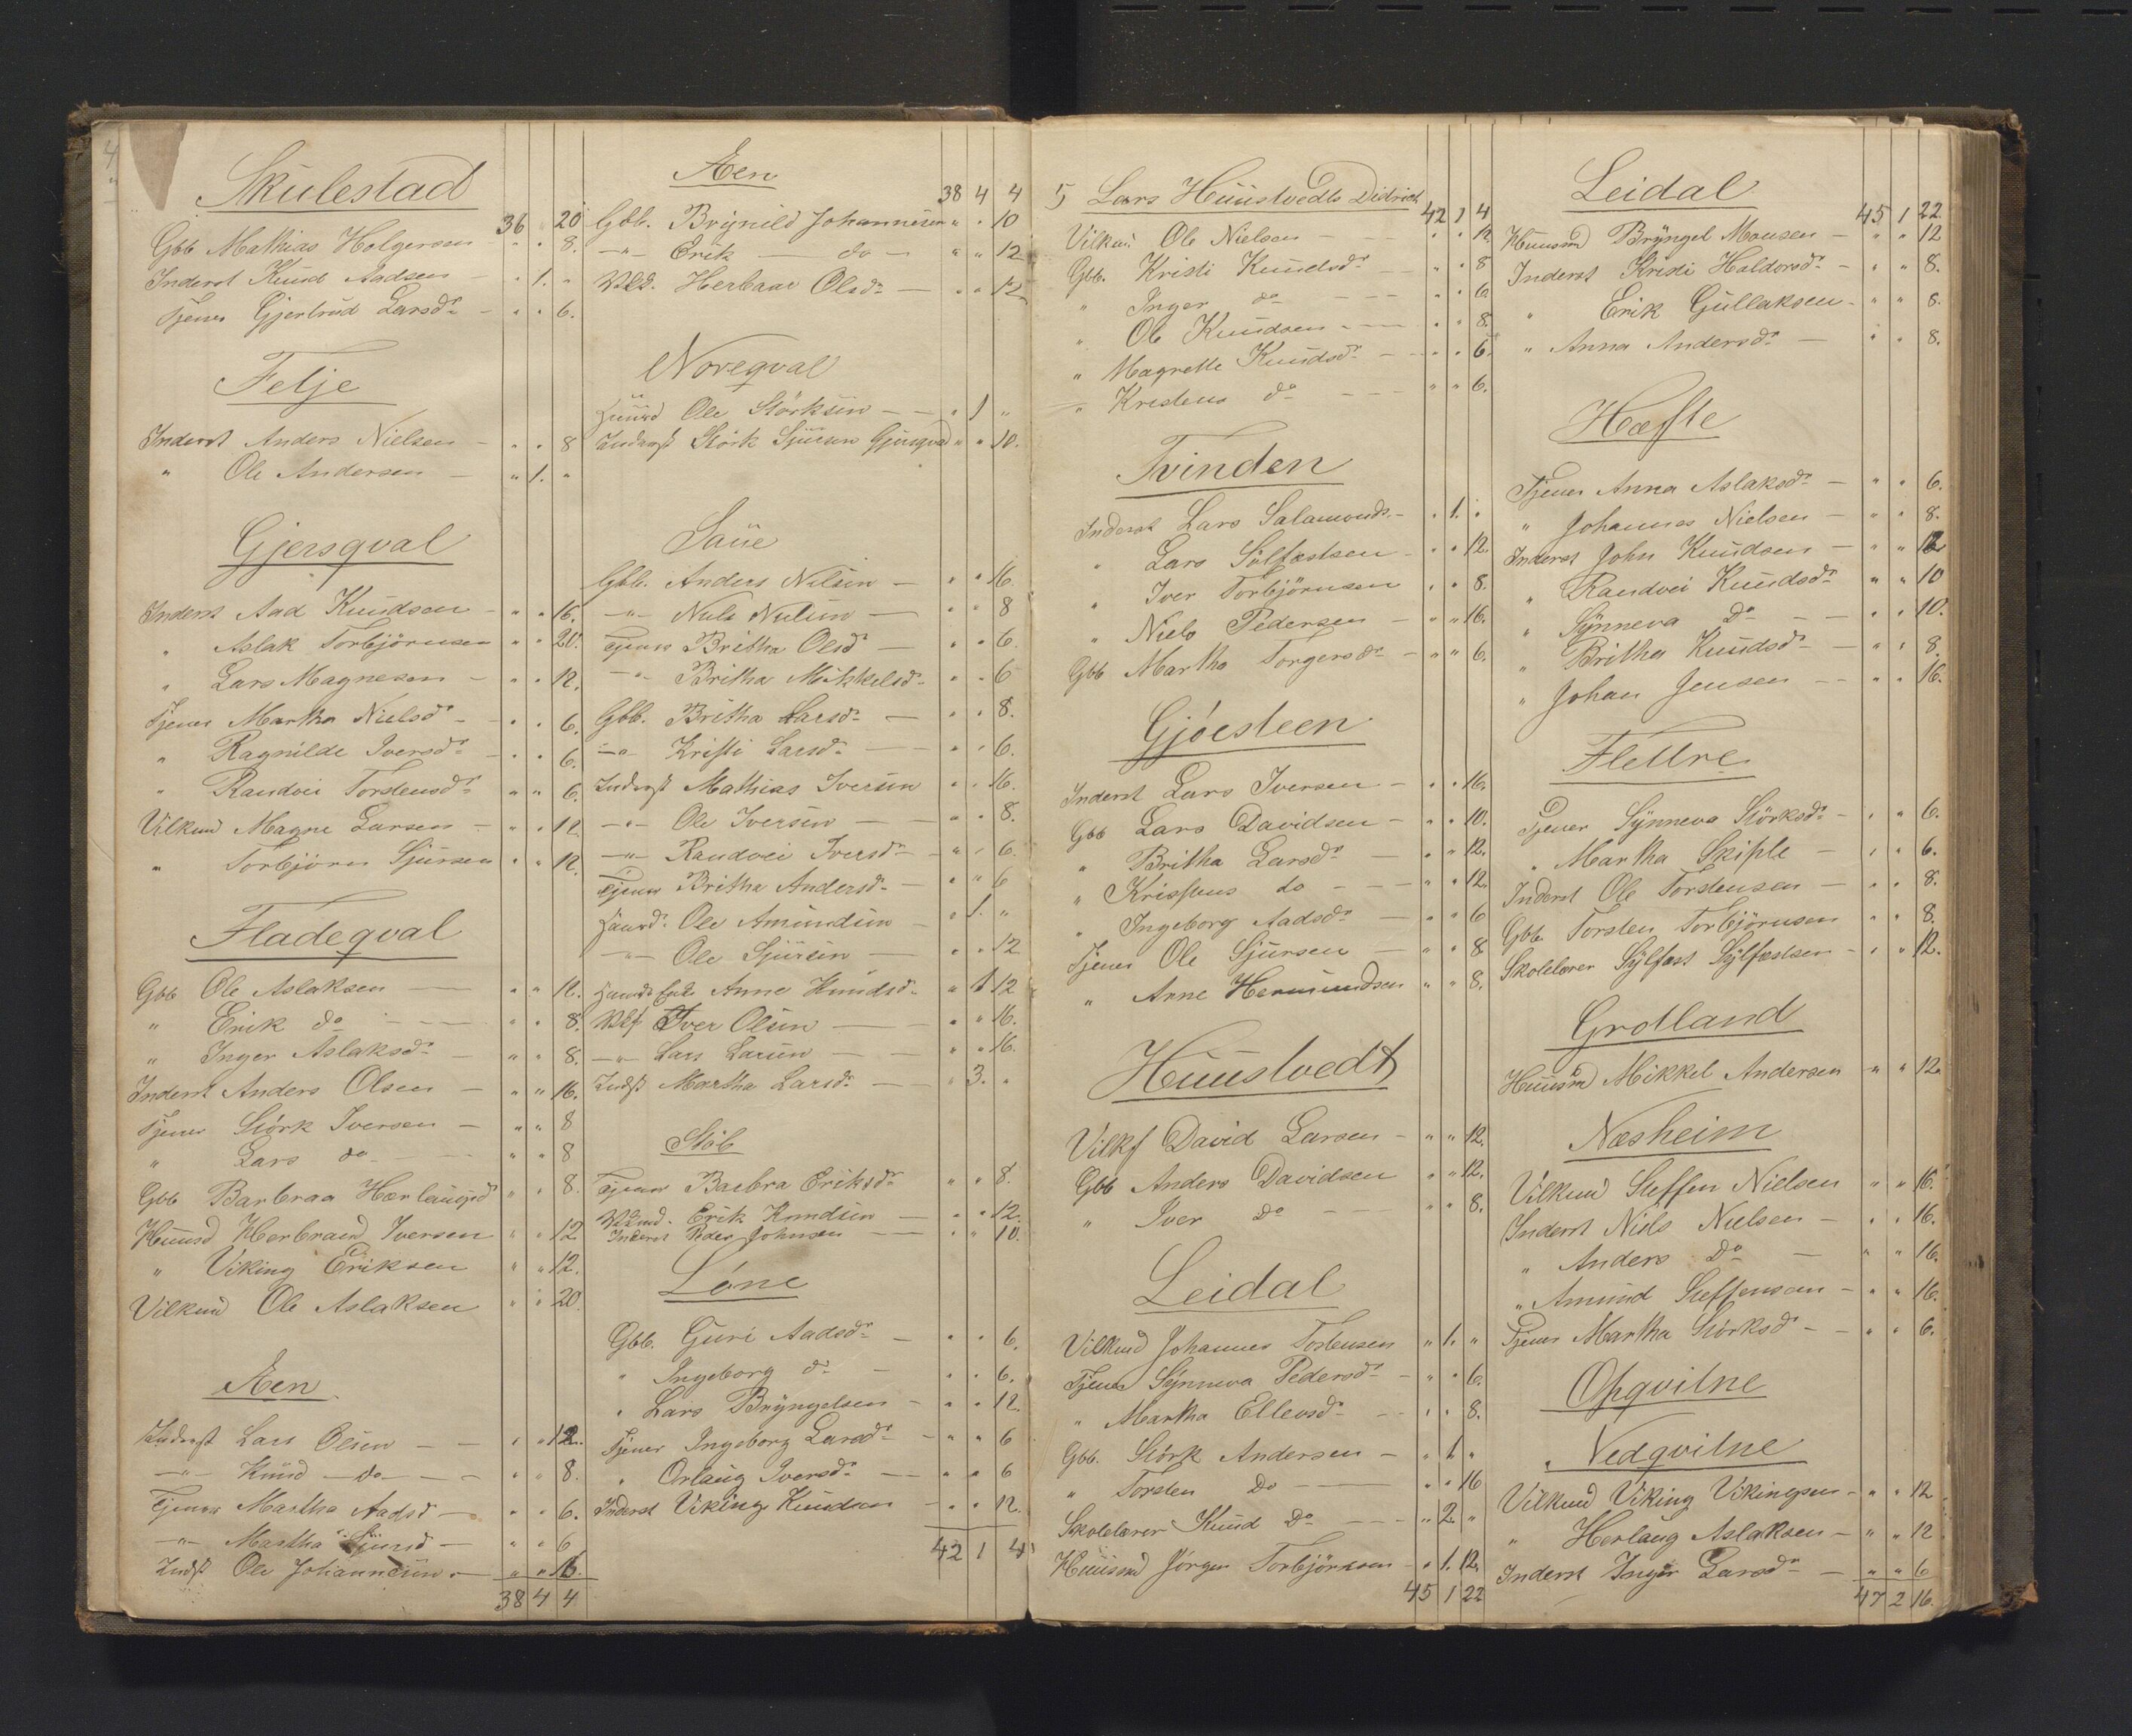 4
Skulestad
36 " 20
Gbb Mathias Holgersen " " 8.
Inderst Knud Aadsen - " 1. "
Tjener Gjertrud Larsdr - " " 6.
Felje
Inderst Anders Nielsen - " " 8
" Ole Andersen - " 1. "
Gjersqval
Inderst Aad Knudsen - " " 16.
" Aslak Torbjörnsen " " 20.
" Lars Magnesen - " " 12.
Tjener Martha Nielsdr - " " 6.
" Ragnilde Iversdr - " " 6.
" Randvei Torstensdr " " 6.
Vilkmd Magne Larsen - " " 12
" Torbjörn Sjursen " " 12.
Fladeqval
Gbb Ole Aslaksen — " " 12.
" Erik do - — " " 8.
" Inger Aslaksdr - " " 8.
Inderst Anders Olsen - " " 16.
Tjener Störk Iversen - " " 8
" Lars do - — " " 8
Gbb Barbraa Herlaugsdr " " 8.
Huusmd Herbrand Iversen " " 12
" Viking Eriksen " " 12.
Vilkmd Ole Aslaksen " " 20.
Aen
Inderst Lars Olsen - - " " 12.
-"- Knud - do - - " " 8.
Tjener Martha Aadsd - " " 6.
-"- Martha Sjursd - " " 6
Indst Ole Johannesen - " " 16.
38 4 4
Aen
38 4 4
Gbb. Brignild Johannesen " " 10
-"- Erik — do - " " 12
Herbaar Olsdr — " " 12
Noreqval
Huusmd Ole Störksen - - " 1 "
Inderst Störk Sjursen Gjersqval " " 10.
Saue
Gbb. Anders Nilsen - " " 16.
-"- Nils Nilsen - " " 8
Tjener Britha Olsd - " " 6.
-"- Britha Mikkelsd - " " 6
Gbb. Britha Larsdr - " " 8.
-"- Kristi Larsdr - " " 6.
Inderst Mathias Iversen " " 16.
-"- Ole Iversen - " " 8.
-"- Randvei Iversdr - " " 6.
Tjener Britha Andersdr - " " 6
Huusmd. Ole Amundsen " 1. "
-"- Ole Sjursen - " " 12
Huusmds Enke Anne Knudsdr " 1 12
Vilkf Iver Olsen — " " 16.
-"- Lars Larsen — " " 16.
Indst Martha Larsdr - " 3. "
Stöb
Tjener Barbra Eriksdr " " 8.
Vilkmd. Erik Knudsen — " " 12.
Inderst Peder Johnsen — " " 10.
Löne
Gbb. Guri Aadsdr - " " 6.
" Ingeborg do - " " 6.
" Lars Bryngelsen - " " 12.
Tjener Ingeborg Larsdr - " " 6
" Orlaug Iversdr - " " 6
Inderst Viking Knudsen - " " 12.
42 1 4
5 Lars Huustvedts Didrict
42 1 4
Vilkmd Ole Nielsen - - " " 12.
Gbb. Kristi Knudsdr - " " 8
" Inger do - - - " " 6
" Ole Knudsen - — " " 8.
" Magrette Knudsdr - " " 6.
" Kristens do - - - " " 6.
Tvinden
Inderst Lars Salamonds. - " 1. "
" Lars Sülfestsen - " " 12.
" Iver Torbjörnsen " " 8.
" Niels Pedersen - " " 16.
Gbb Martha Torgersdr - " " 6.
Gjöesteen
Inderst Lars Iversen - " " 16.
Gbb Lars Davidsen - " " 10.
" Britha Larsdr - " " 12.
" Kristens do - - " " 12.
" Ingeborg Aadsdr - " " 6
Tjener Ole Sjursen - " " 8
" Arne Hermundsen " " 8.
Huustvedt
Vilkf David Larsen - " " 12.
Gbb Anders Davidsen " " 12.
" Iver do - - - " " 8.
Leidal
Vilkmd Johannes Torstensen " 1. "
Tjener Synneva Pedersdr - " " 6.
" Martha Ellevsdr - - " " 8.
Gbb. Störk Andersen - " 1 "
" Torsten Do - — " " 16
Skolelærer Knud Do - - - " 2 "
Huusmd Jörgen Torbjörnsen - " 1. 12.
45 1 22
Leidal
45 1 22
Huusmd Bryngel Monsen - " " 12
Inderst Kristi Haldorsdr - " " 8.
" Erik Gullaksen - " " 8.
" Anna Andersdr - " " 8.
Hæfte
Tjener Anna Aslaksdr - " " 6.
" Johannes Nielsen - " " 8.
Inderst John Knudsen - " " 12
" Randvei Knudsdr " " 10
" Synneva Do - - " " 10.
" Britha Knudsdr - " " 8.
" Johan Jensen - - " " 16.
Flettre
Tjener Synneva Störksdr - " " 6.
" Martha Skiple - " " 6.
Inderst Ole Torstensen - " " 8.
Gbb Torsten Torbjörnsen " " 8.
Skolelærer Sylfæst Sylfæstsen - " " 12.
Grotland
Huusmd Mikkel Andersen " " 12.
Næsheim
Vilkmd Steffen Nielsen " " 16.
Inderst Niels Nielsen - " " 16.
" Anders Do - " " 16.
" Amund Steffensen - " " 16.
Tjener Martha Störksdr - - " " 6.
Opqvitne
" Nedqvitne
Vilkmd Viking Vikingsen - " " 12
" Herlaug Aslaksen - " " 12
Inderst Inger Larsdr - " " 6
47 2 16.